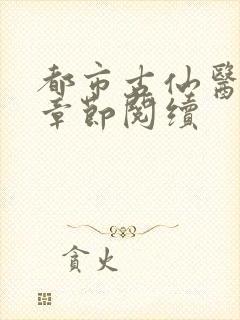 都市古仙醫
章節閱續
貪火